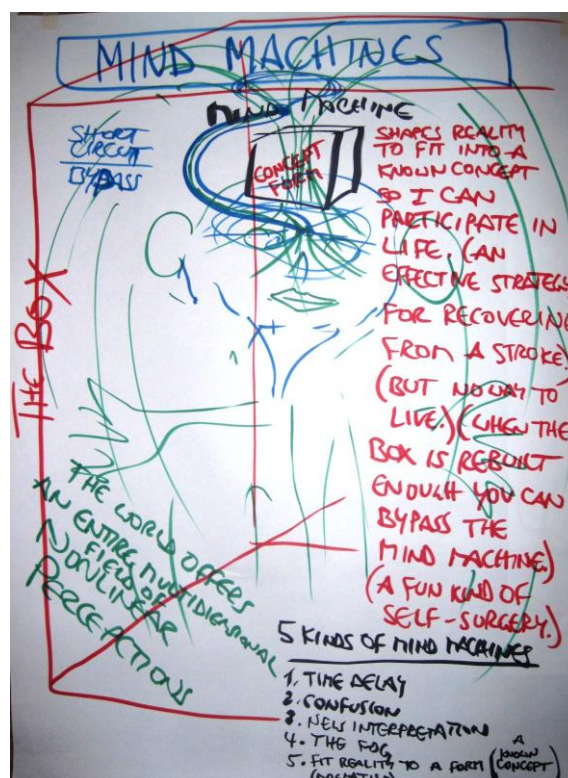 MIND MACHINES
MIND MACHINE
SHORT
CIRCUIT
BYPASS
CONCEPT
FORM
THE BOX
SHAPES REALITY
TO FIT INTO A
KNOWN CONCEPT
SO I CAN
PARTICIPATE IN
LIFE. (AN
EFFECTIVE STRATEGY
FOR RECOVERING
FROM A STROKE)
(BUT NO WAY TO
LIVE.) (WHEN THE
BOX IS REBUILT
ENOUGH YOU CAN
BYPASS THE
MIND MACHINE.)
(A FUN KIND OF
SELF-SURGERY.)
THE WORLD OFFERS
AN ENTIRE MULTIDIMENSIONAL
FIELD OF
NONLINEAR
PERCEACTIONS
5 KINDS OF MIND MACHINES
1. TIME DELAY
2. CONFUSION
3. NEW INTERPRETATION
4. THE FOG
5. FIT REALITY TO A FORM (A KNOWN CONCEPT)